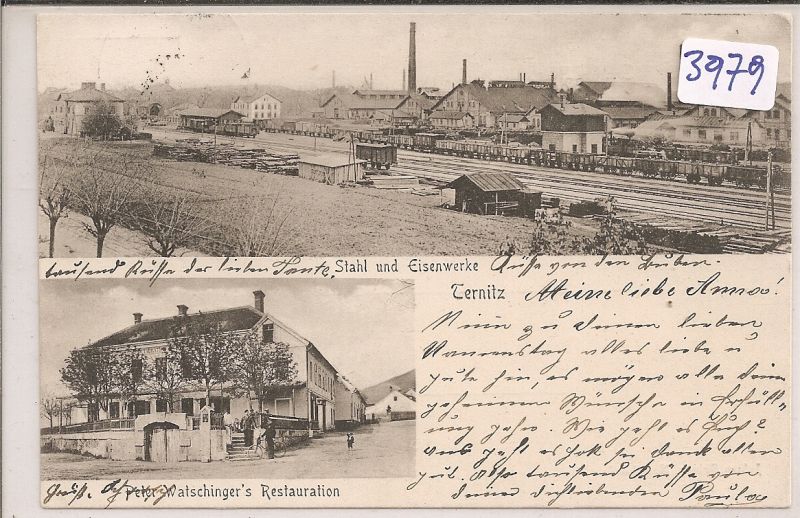 3979
tausend Küsse der lieben Tante. Stahl und Eisenwerke Küsse von den Buben.
Ternitz Meine liebe Anna!
Nimm zu deinem lieben
Namenstag alles liebe u
gute hin, es mögen alle deine
geheimen Wünsche in Erfüll-
ung gehen. Wie geht es Euch?
Uns geht es Gott sei dank allen
gut. Also tausend Küsse von
deiner dichliebenden Paula
Peter Watschinger's Restauration